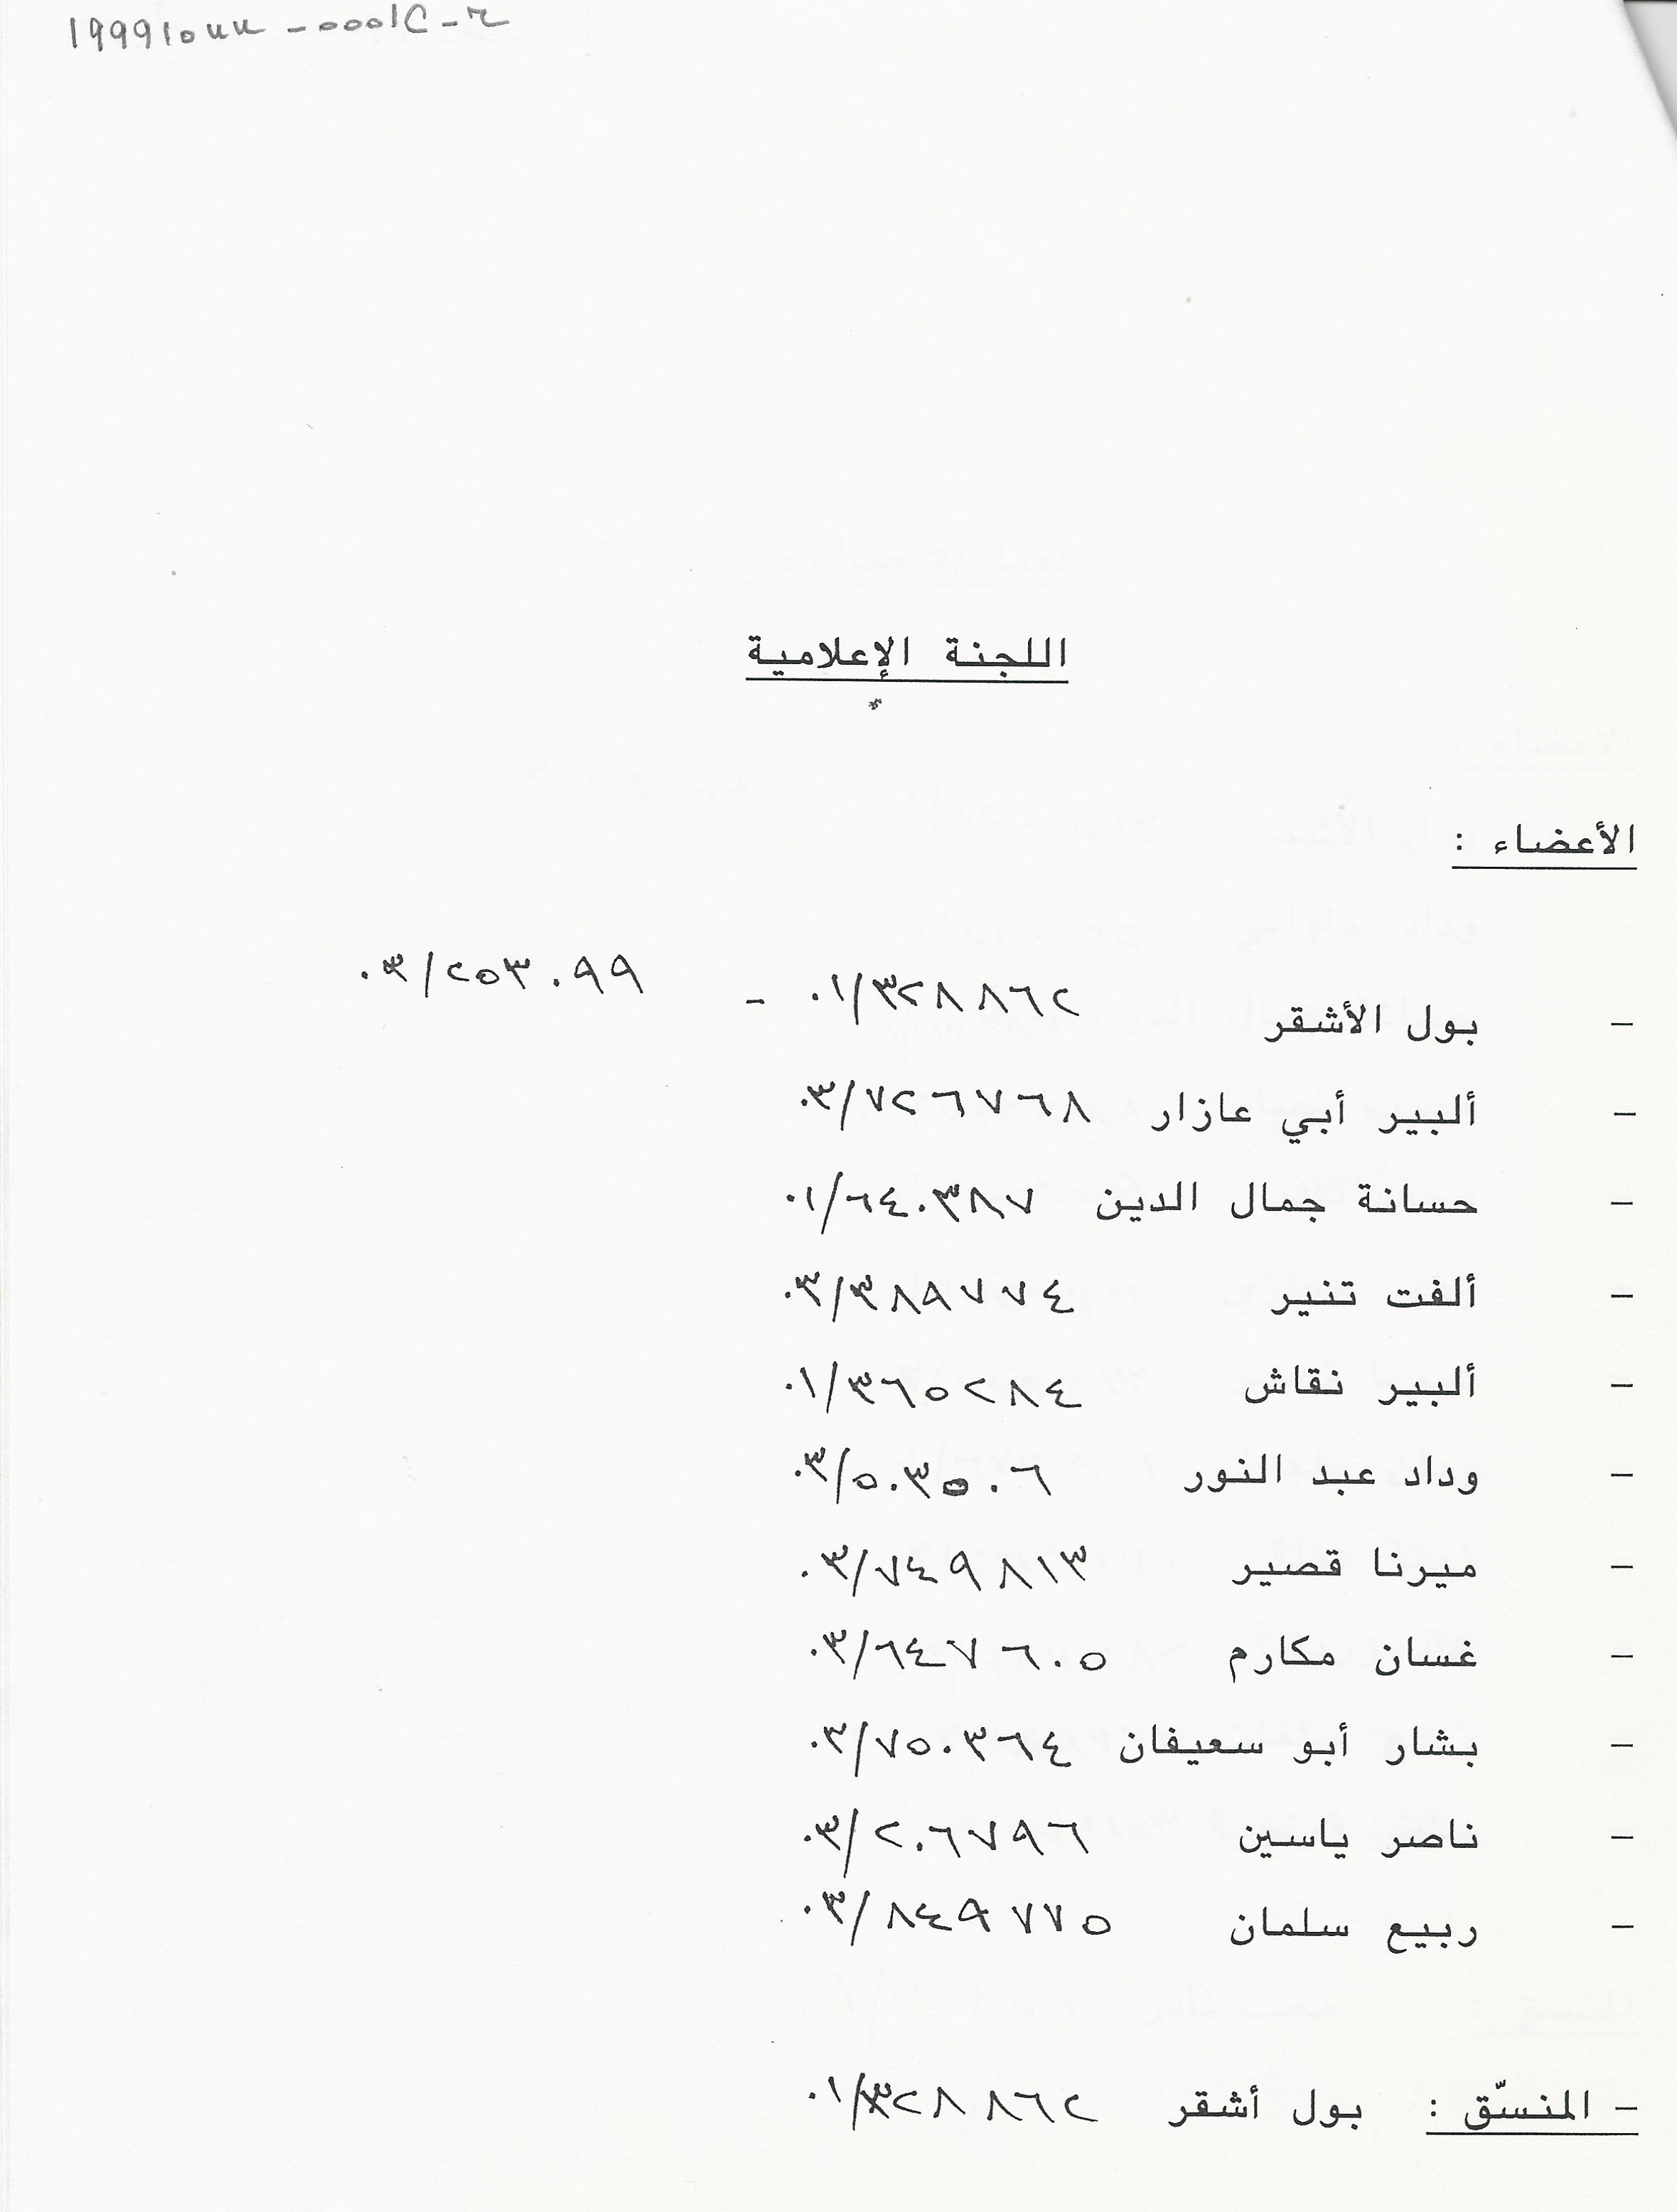 اللجنة الإعلامية
*
الأعضاء :
- بول الأشقر ٠١/٣٢٨٨٦٢ - ٠٣/٢٥٣٠٩٩
- ألبير أبي عازار ٠٣/٧٢٦٧٦٨
- حسانة جمال الدين ٠١/٦٤٠٣٨٧
- ألفت تنير ٠٣/٣٨٩٧٧٤
- ألبير نقاش ٠١/٣٦٥٢٨٤
- وداد عبد النور ٠٣/٥٠٣٥٠٦
- ميرنا قصير ٠٣/٧٤٩٨١٣
- غسان مكارم ٠٣/٦٤٧٦٠٥
- بشار أبو سعيفان ٠٣/٧٥٠٣٦٤
- ناصر ياسين ٠٣/٢٠٦٧٩٦
- ربيع سلمان ٠٣/٨٤٩٧٧٥
- المنسّق : بول أشقر ٠١/٣٢٨٨٦٢